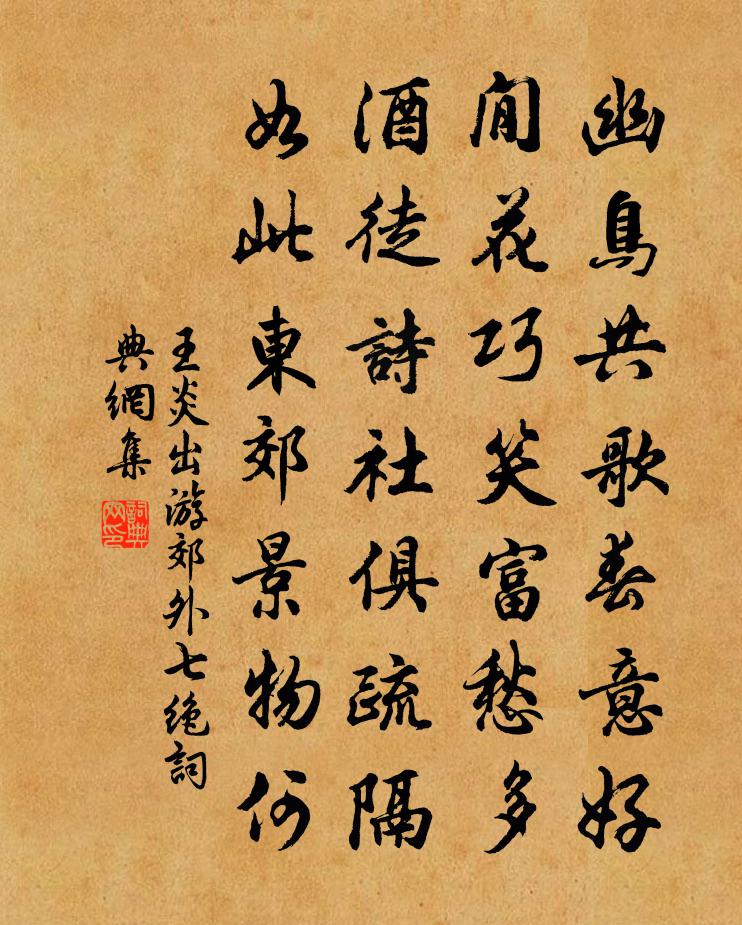 幽鳥共歌春意好
閒花巧笑富愁多
酒徒詩社俱疏隔
如此東郊景物何
王炎出游郊外七绝詞
典網集
詞典
网印